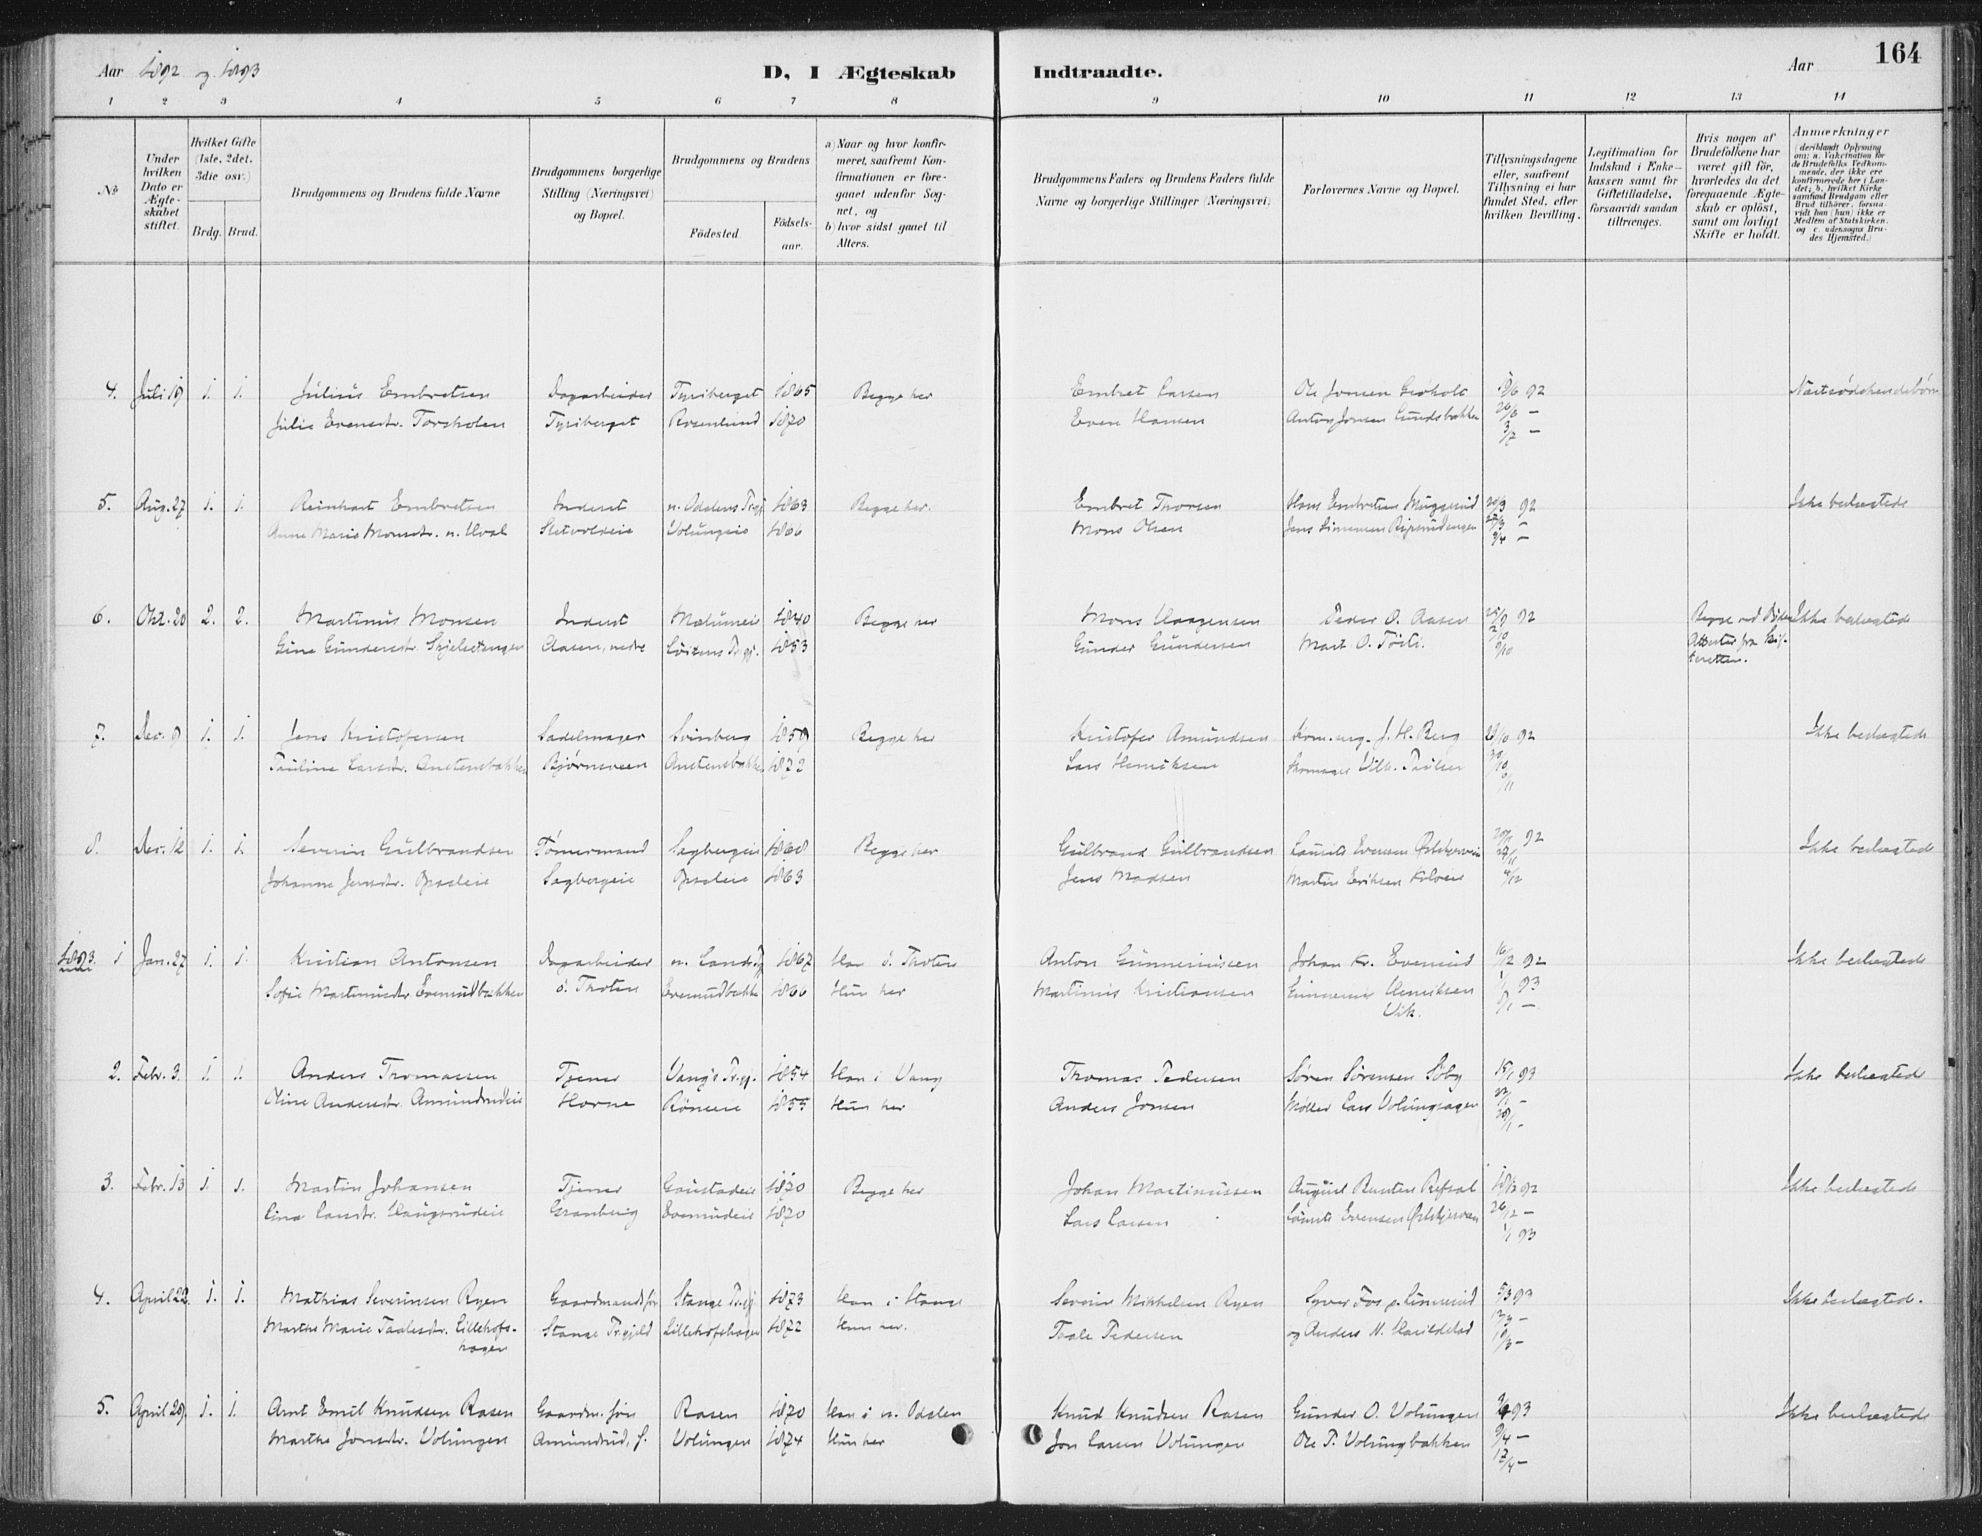 Aar 1892 og 1893
D, I Ægteskab Indtraadte.
Aar
164
1 2 3 4 5 6 7 8 9 10 11 12 13 14
No
Under hvilken Dato er Ægteskabet stiftet.
Hvilket Gifte (1ste, 2det, 3die osv.)
Brdg. Brud.
Brudgommens og Brudens fulde Navne
Brudgommens borgerlige Stilling (Næringsvei) og Bopæl.
Brudgommens og Brudens
Födested. Födselsaar.
a) Naar og hvor konfirmeret, saafremt Konfirmationen er foregaaet udenfor Sognet, og
b) hvor sidst gaaet til Alters.
Brudgommens Faders og Brudens Faders fulde Navne og borgerlige Stillinger (Næringsvei)
Forlovernes Navne og Bopæl.
Tillysningsdagene eller, saafremt Tillysning ei har fundet Sted, efter hvilken Bevilling.
Legitimation for Indskud i Enkekassen samt for Giftetilladelse, forsaavidt saadan tiltrænges.
Hvis nogen af Brudefolkene har været gift för, hvorledes da det foregaaende Ægteskab er oplöst, samt om lovligt Skifte er holdt.
Anmærkninger (deriblandt Oplysning om: a. Vakcination for de Brudefolks Vedkommende, der ikke ere konfirmerede her i Landet; b. hvilket Kirkesamfund Brudgom eller Brud tilhörer, forsaavidt han (hun) ikke er Medlem af Statskirken. og c. udensogns Brudes Hjemsted.)
4. Juli 19 1. 1. Julius Embretsen Dagarbeider Tyriberget 1865 Begge her Embret Larsen Ole Jonsen 19/6 92
Julie Evensdr. Torsholen Tyriberget Rosenlund 1870 Even Hansen Anton Jonsen Lundsbakken 26/6 —
3/7 —
5. Aug. 27 1. 1. Reinhart Embretsen Inderst n. Odalens Prgj. 1863 Begge her. Embret Thorsen Hans Embretsen 20/3 92 Ikke beslægtede
Anne Marie Monsdr. n. Hval Sletvoldeie Volungeie 1866 Mons Olsen Jens Simensen 27/3 —
3/4 —
6. Okt. 20 2. 2. Martinus Monsen Inderst Mælumeie 1840 Begge her Mons Haagensen Peder O. Aasen 25/9 92 Ikke beslægtede
Gine Gundersdr. Skjelsetengen Aasen, nedre Löitens Prgj. 1853 Gunder Gundersen Mart. O. 2/10
9/10
7. Dec. 9 1. 1. Jens Kristofersen Sadelmager Svinberg 1859 Begge her Kristofer Amundsen J. H. Berg 23/10 92 Ikke beslægtede
Pauline Larsdr. Anstensbakken Bjørnsveen Anstensbakken 1872 Lars Henriksen Skomager Vilh. Paulsen 30/10
6/11
8. Dec. 12 1. 1. Severin Gulbrandsen Tömermand Sagbergeie 1868 Begge her Gulbrand Gulbrandsen Laurits Evensen 20/11 92 Ikke beslægtede
Johanne Jensdr. Opsaleie Sagbergeie Opsaleie 1863 Jens Madsen Martin Eriksen 27/11
4/12
1893. 1 Jan. 27 1. 1. Kristian Antonsen Dagarbeider n. Lands Prgj 1867 Han ö. Thoten Anton Gunneriussen Johan Kr. Evenrud 16/12 92 Ikke beslægtede
Sofie Martinusdr. Evenrudbakken ö. Thoten Evenrudbakken 1866 Hun her Martinus Kristiansen Gunnerius Henriksen 1/1 93
Vik. 8/1 —
2. Febr. 3. 1. 1. Anders Thomassen Tjener Vang's Prgj. 1854 Han i Vang Thomas Pedersen Sören Sörensen Söby 15/1 93 Ikke beslægtede
Oline Andersdr. Amundrudeie Horne Röneie 1855 Hun her Anders Jonsen Møller Lars Volungsagen 22/1 —
29/1 —
3. Febr. 13 1. 1. Martin Johansen Tjener Gaustadeie 1870 Begge her Johan Martinussen August 18/12 92 Ikke beslægtede
Lina Larsdr. Haugsrudeie Granberg Evenrudeie 1870 Lars Larsen Laurits Evensen 26/12 —
1/1 93
4. April 22. 1. 1. Mathias Severinsen Ryen Gaardmandsfor Stange Prgj 1873 Han i Stange Severin Mikkelsen Ryen Syver 5/3 93 Ikke beslægtede.
Marthe Marie Taalesdr. Lillehofs- Stange Prgjeld Lillehofshagen 1872 Hun her. Taale Pedersen og Anders N. 12/3 —
hagen 19/3 —
5. April 29. 1. 1. Arnt Emil Knudsen Rasen Gaardm. sön Rasen 1870 Han i n. Odalen Knud Knudsen Rasen Gunder O. Volungen 93 Ikke beslægtede
Marthe Jonsdr. Volungen Amundrud, s. Volungen 1874 Hun her Jon Larsen Volungen Ole P. Volungbakken 9/4 —
17/4 —